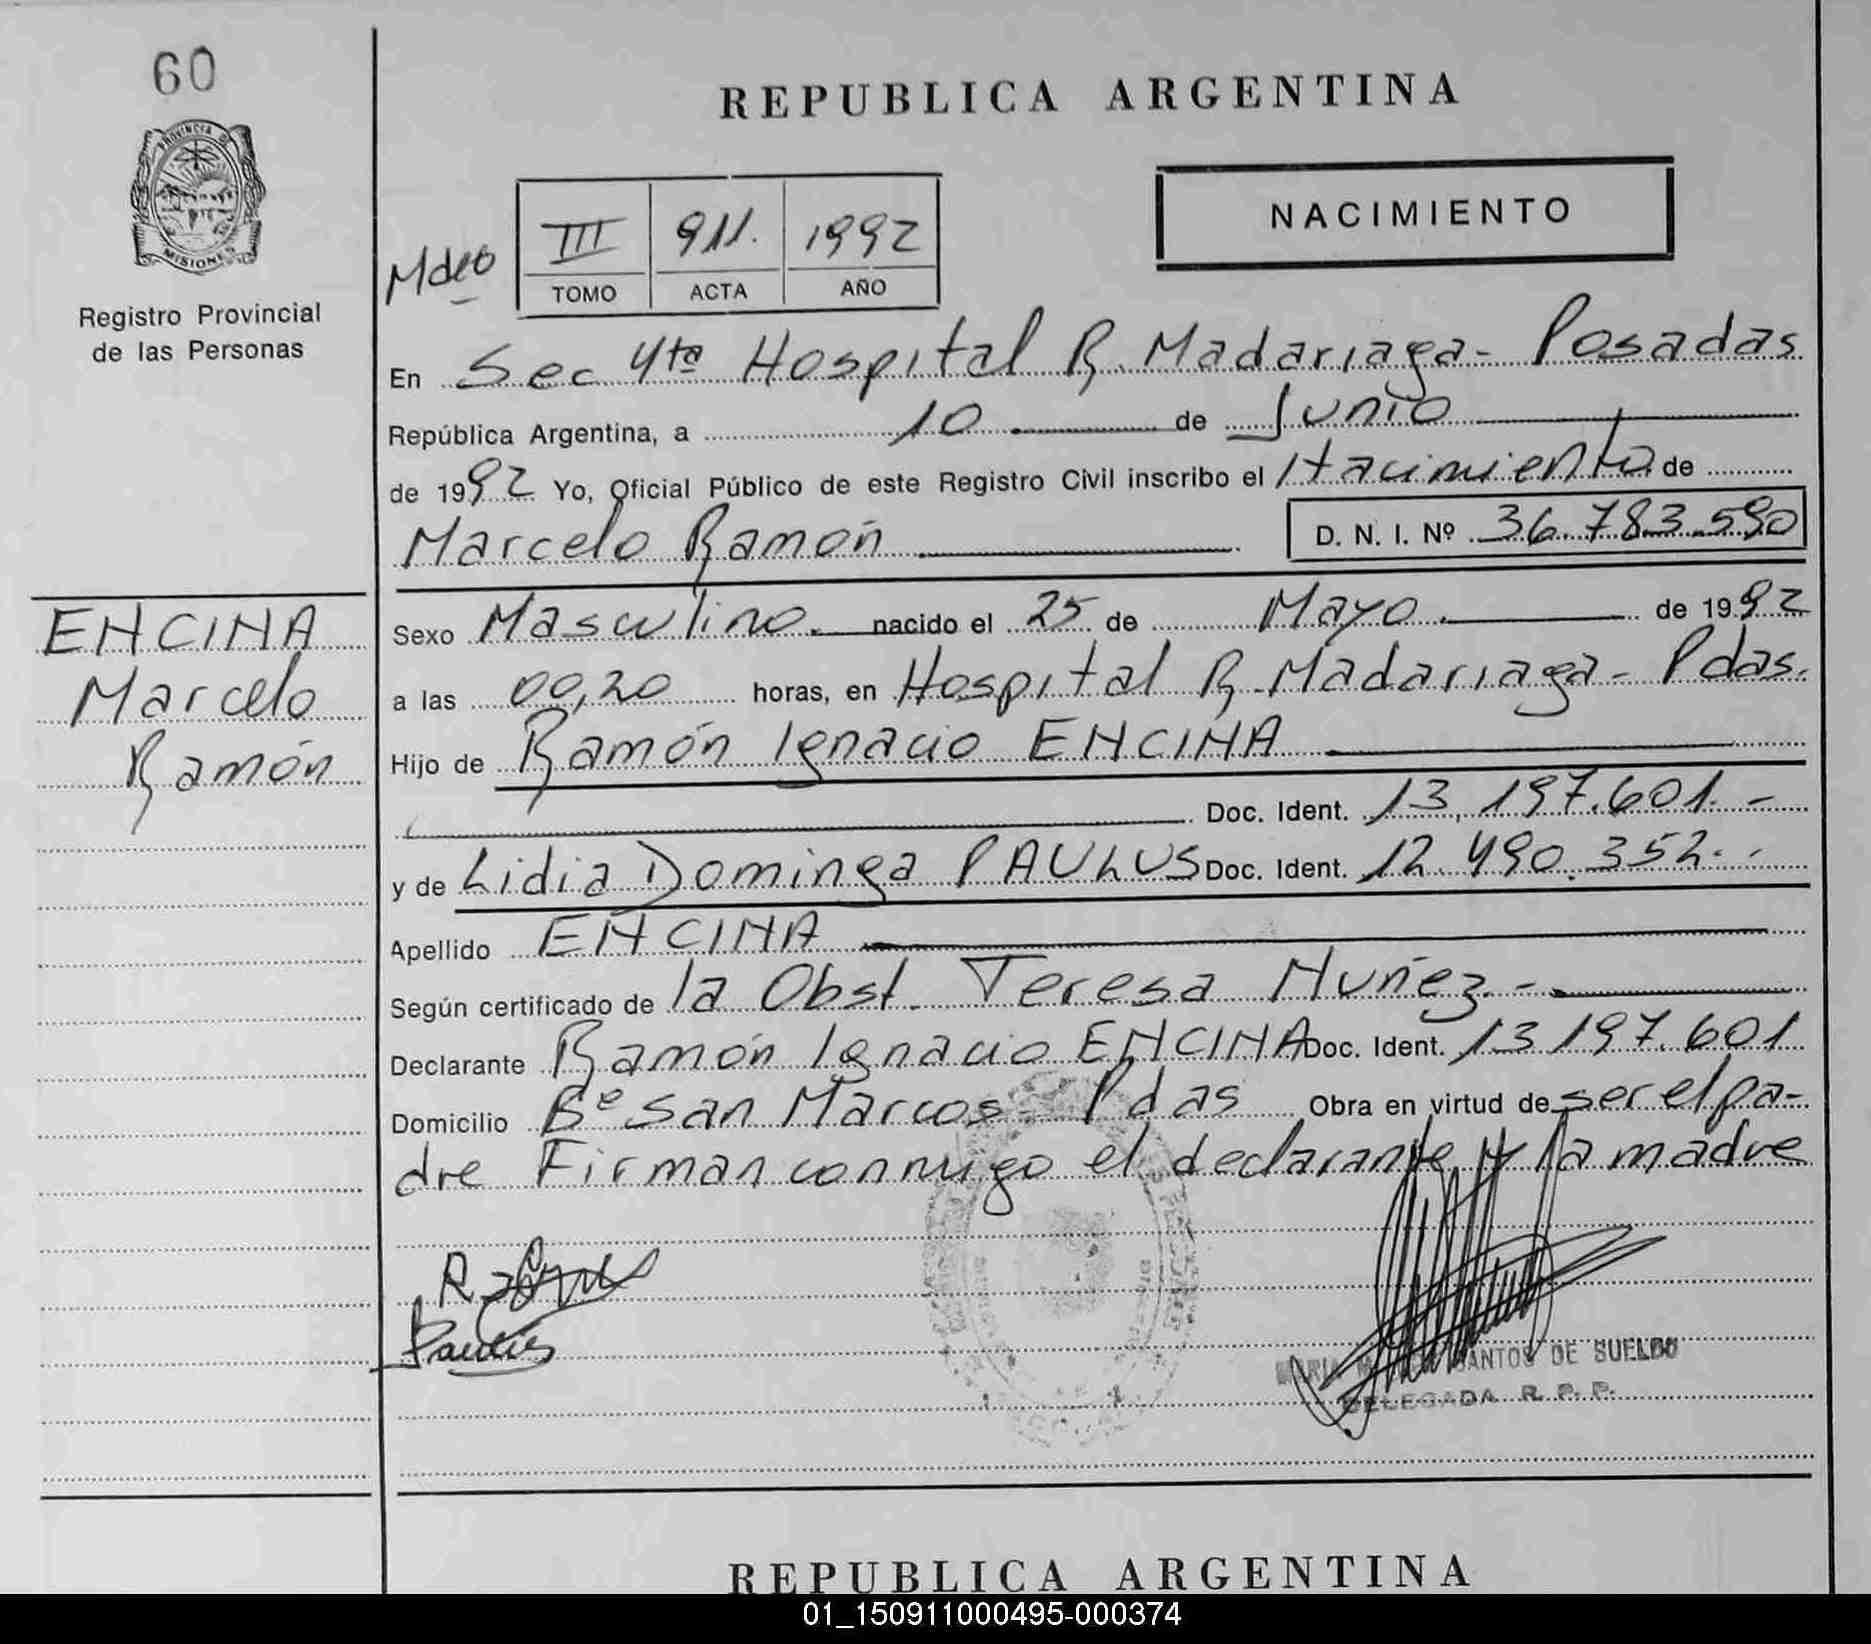 60
REPUBLICA ARGENTINA
PROVINCIA DE
MISIONES
Registro Provincial
de las Personas
NACIMIENTO
III 911. 1992
TOMO ACTA AÑO
En Sec 4ta Hospital R. Madariaga - Posadas
República Argentina, a 10 de Junio
de 1992 Yo, Oficial Público de este Registro Civil inscribo el Nacimiento de
Marcelo Ramón D. N. I. Nº 36.783.590
ENCINA
Marcelo
Ramón
Sexo Masculino. nacido el 25 de Mayo. de 1992
a las 00,20 horas, en Hospital R. Madariaga - Pdas.
Hijo de Ramón Ignacio ENCINA
Doc. Ident. 13,197.601.-
y de Lidia Dominga PAULUS Doc. Ident. 12.490.352.-
Apellido ENCINA
Según certificado de la Obst. Teresa Nuñez.-
Declarante Ramón Ignacio ENCINA Doc. Ident. 13 197.601
Domicilio Bº San Marcos - Pdas Obra en virtud de ser el pa-
dre Firman conmigo el declarante y la madre
Paulus
SANTOS DE SUELDO
DELEGADA R. P. P.
REPUBLICA ARGENTINA
01_150911000495-000374